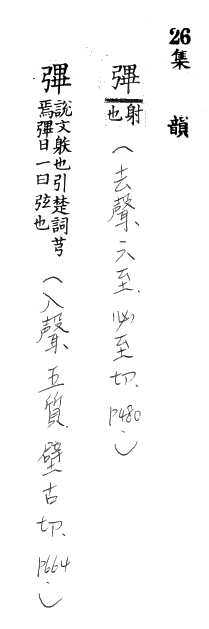 26 集 韻
彃 射也 (去聲、六至、必至切、P480。)
彃 說文䠶也引楚詞芎
焉彃日一曰弦也 (入聲、五質、壁古切、P664。)